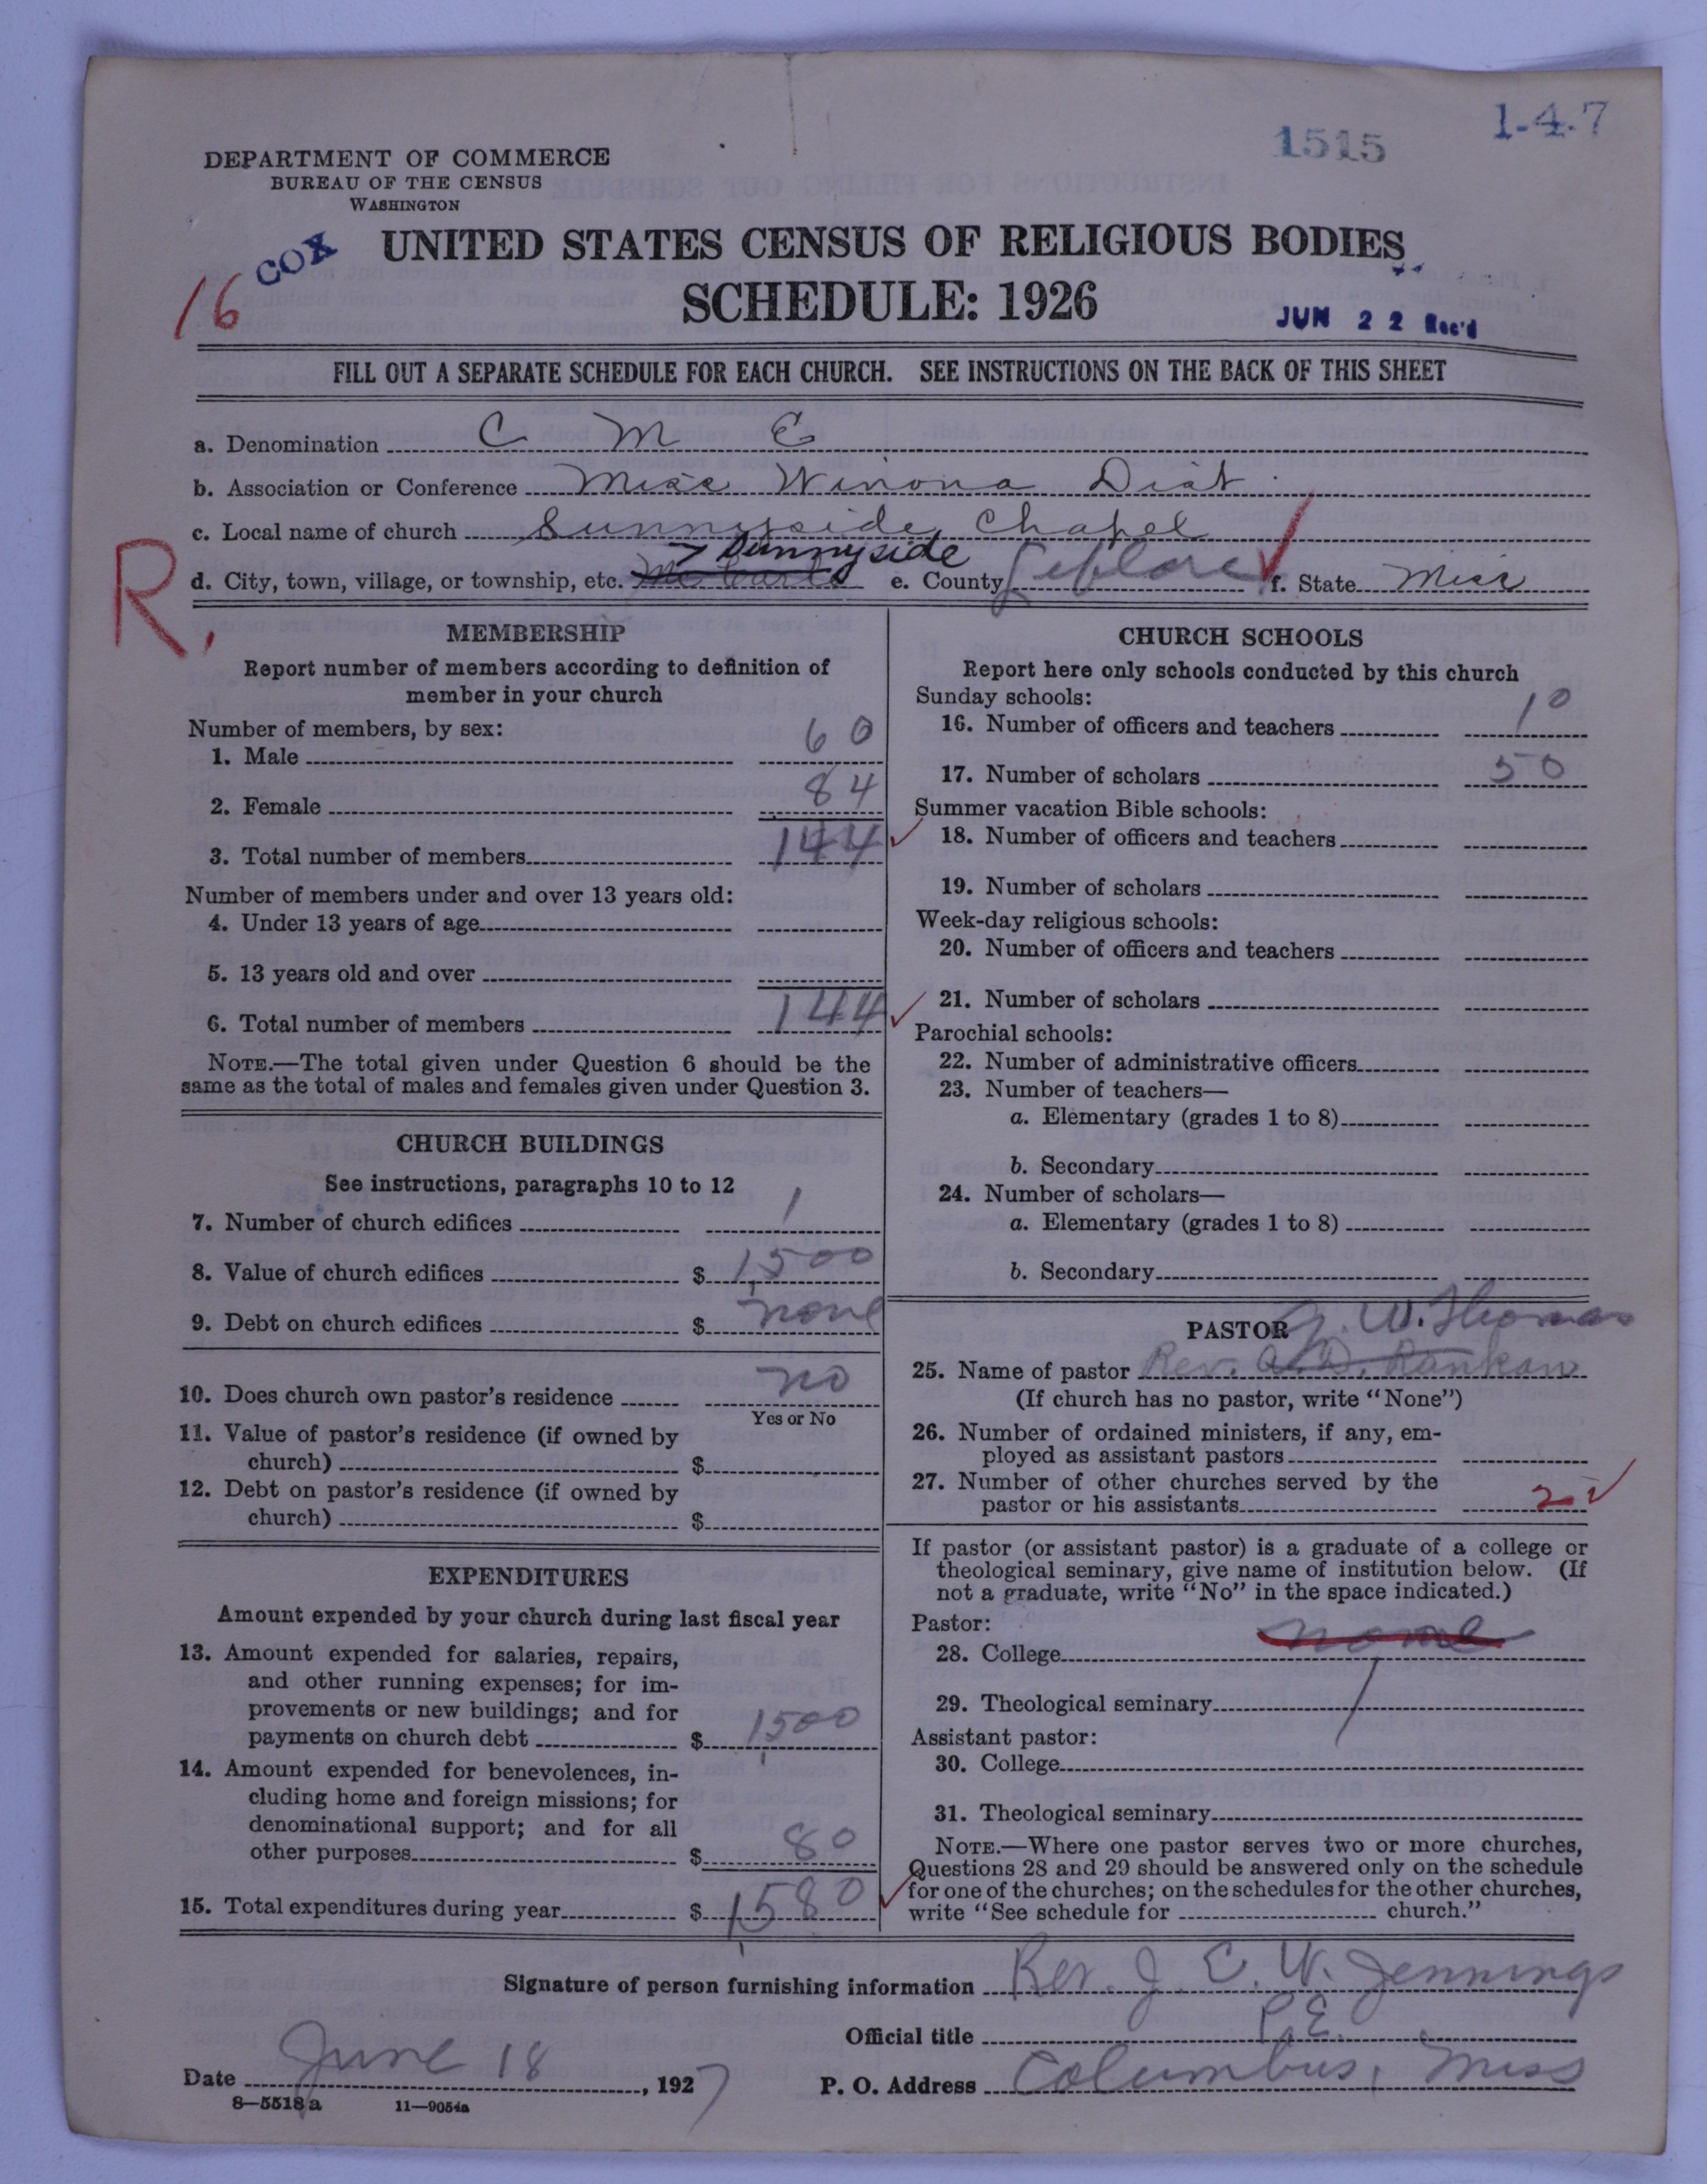 1515
1-4-7
DEPARTMENT OF COMMERCE
BUREAU OF THE CENSUS
WASHINGTON
COX
16
UNITED STATES CENSUS OF RELIGIOUS BODIES
SCHEDULE: 1926
JUN 22 Rec'd
FILL OUT A SEPARATE SCHEDULE FOR EACH CHURCH. SEE INSTRUCTIONS ON THE BACK OF THIS SHEET
a. Denomination C M E
b. Association or Conference Miss Winona Dist
c. Local name of church Sunnyside Chapel
R.
Sunnyside
d. City, town, village, or township, etc. e. County Leflore f. State Miss
MEMBERSHIP
Report number of members according to definition of
member in your church
Number of members, by sex:
1. Male 60
2. Female 84
3. Total number of members 144
Number of members under and over 13 years old:
4. Under 13 years of age
5. 13 years old and over
6. Total number of members 144
NOTE.—The total given under Question 6 should be the
same as the total of males and females given under Question 3.
CHURCH BUILDINGS
See instructions, paragraphs 10 to 12
7. Number of church edifices 1
8. Value of church edifices $ 1,500
9. Debt on church edifices $ none
10. Does church own pastor's residence no
Yes or No
11. Value of pastor's residence (if owned by
church) $
12. Debt on pastor's residence (if owned by
church) $
EXPENDITURES
Amount expended by your church during last fiscal year
13. Amount expended for salaries, repairs,
and other running expenses; for im-
provements or new buildings; and for
payments on church debt $ 1,500
14. Amount expended for benevolences, in-
cluding home and foreign missions; for
denominational support; and for all
other purposes $ 80
15. Total expenditures during year $ 1,580
CHURCH SCHOOLS
Report here only schools conducted by this church
Sunday schools:
16. Number of officers and teachers 10
17. Number of scholars 50
Summer vacation Bible schools:
18. Number of officers and teachers
19. Number of scholars
Week-day religious schools:
20. Number of officers and teachers
21. Number of scholars
Parochial schools:
22. Number of administrative officers
23. Number of teachers—
a. Elementary (grades 1 to 8)
b. Secondary
24. Number of scholars—
a. Elementary (grades 1 to 8)
b. Secondary
PASTOR G. W. Thomas
25. Name of pastor Rev. A. D. Rankan
(If church has no pastor, write "None")
26. Number of ordained ministers, if any, em-
ployed as assistant pastors
27. Number of other churches served by the
pastor or his assistants 2
If pastor (or assistant pastor) is a graduate of a college or
theological seminary, give name of institution below. (If
not a graduate, write "No" in the space indicated.)
Pastor:
28. College none
29. Theological seminary
Assistant pastor:
30. College
31. Theological seminary
NOTE.—Where one pastor serves two or more churches,
Questions 28 and 29 should be answered only on the schedule
for one of the churches; on the schedules for the other churches,
write "See schedule for church."
Signature of person furnishing information Rev. J. E. W. Jennings
Official title P.E.
Date June 18, 1927 P. O. Address Columbus, Miss
8—5518a 11—9054a